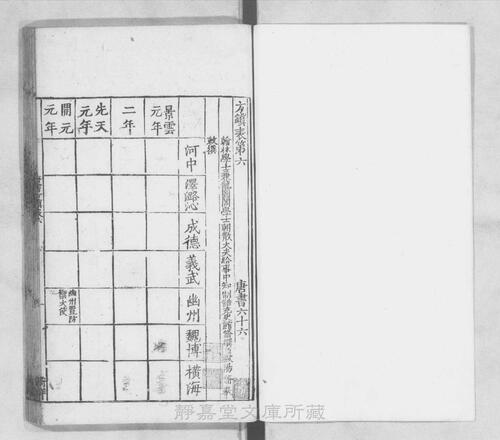 方鎮表第六
唐書六十六
翰林學士兼龍圖閣學士朝散大夫給事中知制誥充史館脩撰
歐陽
敕撰
河中
澤潞沁
成德
義武
幽州
魏博
橫海
景雲元年
二年
先天元年
開元元年
幽州置防禦大使
靜嘉堂文庫所藏